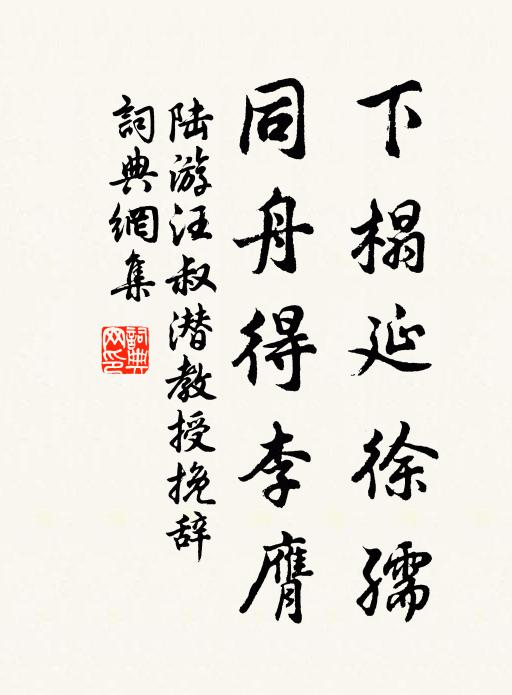 下榻延徐孺
同舟得李膺
陆游汪叔潜教授挽辞
詞典網集
詞典
网印